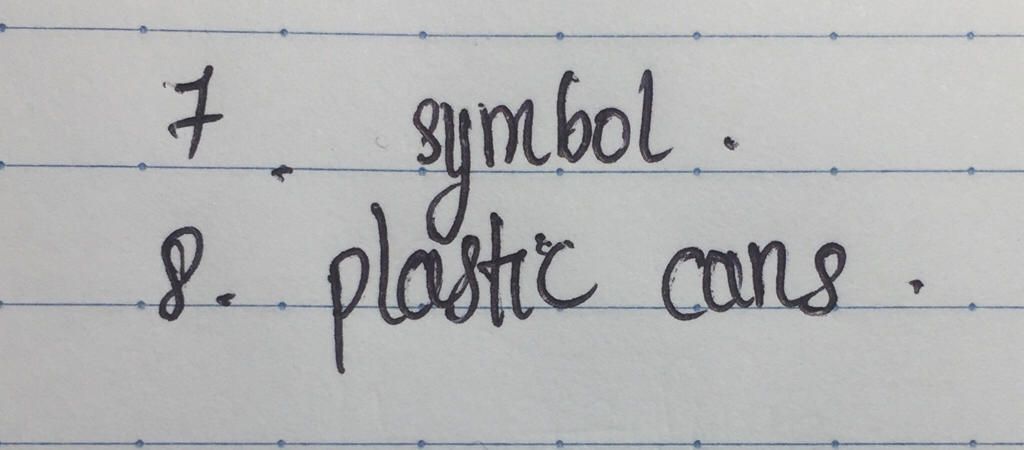 7. symbol.
8. plastic cans.